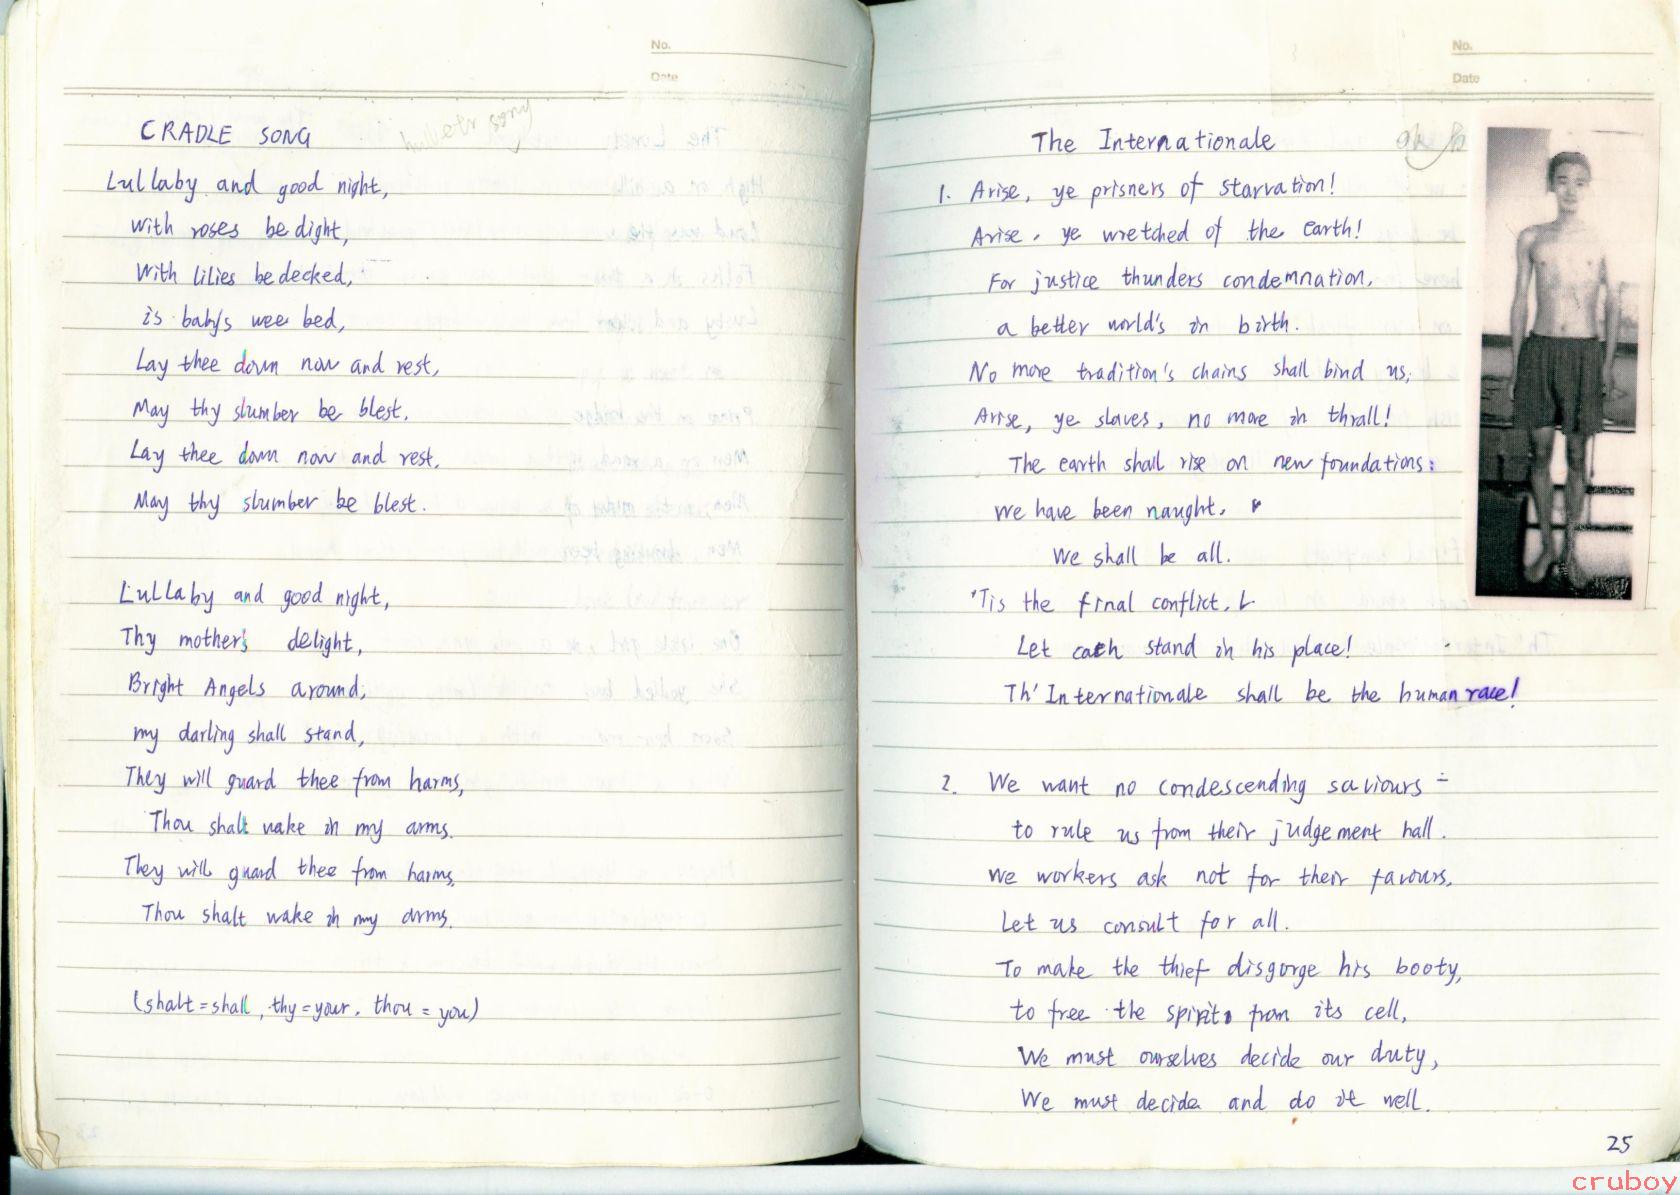 No.
Date
CRADLE SONG
song
Lullaby and good night,
With roses bedight,
With lilies bedecked,
is baby's wee bed,
Lay thee down now and rest,
May thy slumber be blest.
Lay thee down now and rest.
May thy slumber be blest.
Lullaby and good night,
Thy mother's delight,
Bright Angels around,
my darling shall stand,
They will guard thee from harms,
Thou shalt wake in my arms.
They will guard thee from harms,
Thou shalt wake in my arms.
(shalt=shall, thy=your, thou=you)
No.
Date
The Internationale
1. Arise, ye prisners of starvation!
Arise, ye wretched of the earth!
For justice thunders condemnation,
a better world's in birth.
No more tradition's chains shall bind us;
Arise, ye slaves, no more in thrall!
The earth shall rise on new foundations:
We have been naught,
We shall be all.
'Tis the final conflict,
Let each stand in his place!
Th' Internationale shall be the human race!
2. We want no condescending saviours
to rule us from their judgement hall.
We workers ask not for their favours,
Let us consult for all.
To make the thief disgorge his booty,
to free the spirit from its cell,
We must ourselves decide our duty,
We must decide and do it well.
25
cruboy